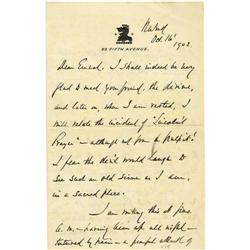 Oct. 16
1902.
23 FIFTH AVENUE.
I shall indeed be very
glad to meet your friend, the divine,
and later on, when I am rested, I
will relate the incident of "Lincoln's
Prayer" – although not from a Pulpit!
I fear the devil would laugh to
see such an old sinner as I am,
in a sacred place.
I am writing this at
a.m. – having been up all night –
tortured by pain – a attack of